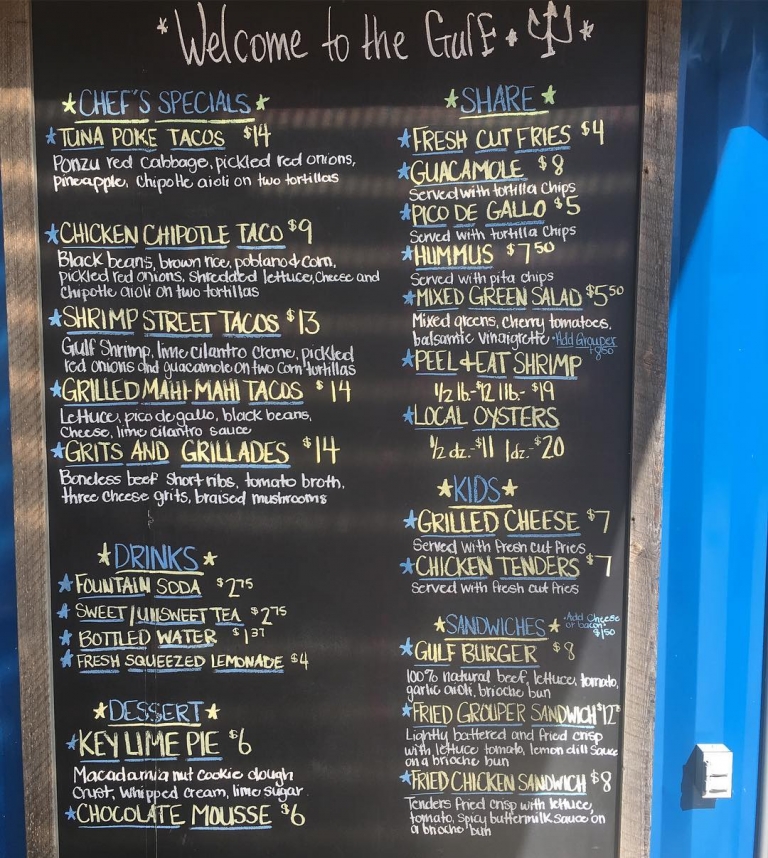 Welcome to the Gulf
CHEF'S SPECIALS
TUNA POKE TACOS $14
Ponzu red cabbage, pickled red onions,
pineapple, Chipotle aioli on two tortillas
CHICKEN CHIPOTLE TACO $9
Black beans, brown rice, poblano & corn,
pickled red onions, shredded lettuce, Cheese and
Chipotle aioli on two tortillas
SHRIMP STREET TACOS $13
Gulf Shrimp, lime cilantro creme, pickled
red onions and guacamole on two Corn tortillas
GRILLED MAHI-MAHI TACOS $14
Lettuce, pico de gallo, black beans,
Cheese, lime cilantro sauce
GRITS AND GRILLADES $14
Boneless beef short ribs, tomato broth,
three cheese grits, braised mushrooms
DRINKS
FOUNTAIN SODA $2.75
SWEET/UNSWEET TEA $2.75
BOTTLED WATER $1.37
FRESH SQUEEZED LEMONADE $4
DESSERT
KEY LIME PIE $6
Macadamia nut cookie dough
Crust, Whipped Cream, lime sugar
CHOCOLATE MOUSSE $6
SHARE
FRESH CUT FRIES $4
GUACAMOLE $8
Served with tortilla chips
PICO DE GALLO $5
Served with tortilla chips
HUMMUS $7.50
Served with pita chips
MIXED GREEN SALAD $5.50
Mixed greens, cherry tomatoes,
balsamic vinaigrette Add Grouper
+8.50
PEEL + EAT SHRIMP
1/2 lb.-$12 1lb.-$19
LOCAL OYSTERS
1/2 dz.-$11 1dz.-$20
KIDS
GRILLED CHEESE $7
Served with fresh cut fries
CHICKEN TENDERS $7
Served with fresh cut fries
SANDWICHES Add Cheese
or bacon
$1.50
GULF BURGER $8
100% natural beef, lettuce, tomato,
garlic aioli, brioche bun
FRIED GROUPER SANDWICH $12
Lightly battered and fried crisp
with lettuce tomato, lemon dill Sauce
on a brioche bun
FRIED CHICKEN SANDWICH $8
Tenders fried crisp with lettuce,
tomato, spicy buttermilk sauce on
a brioche bun